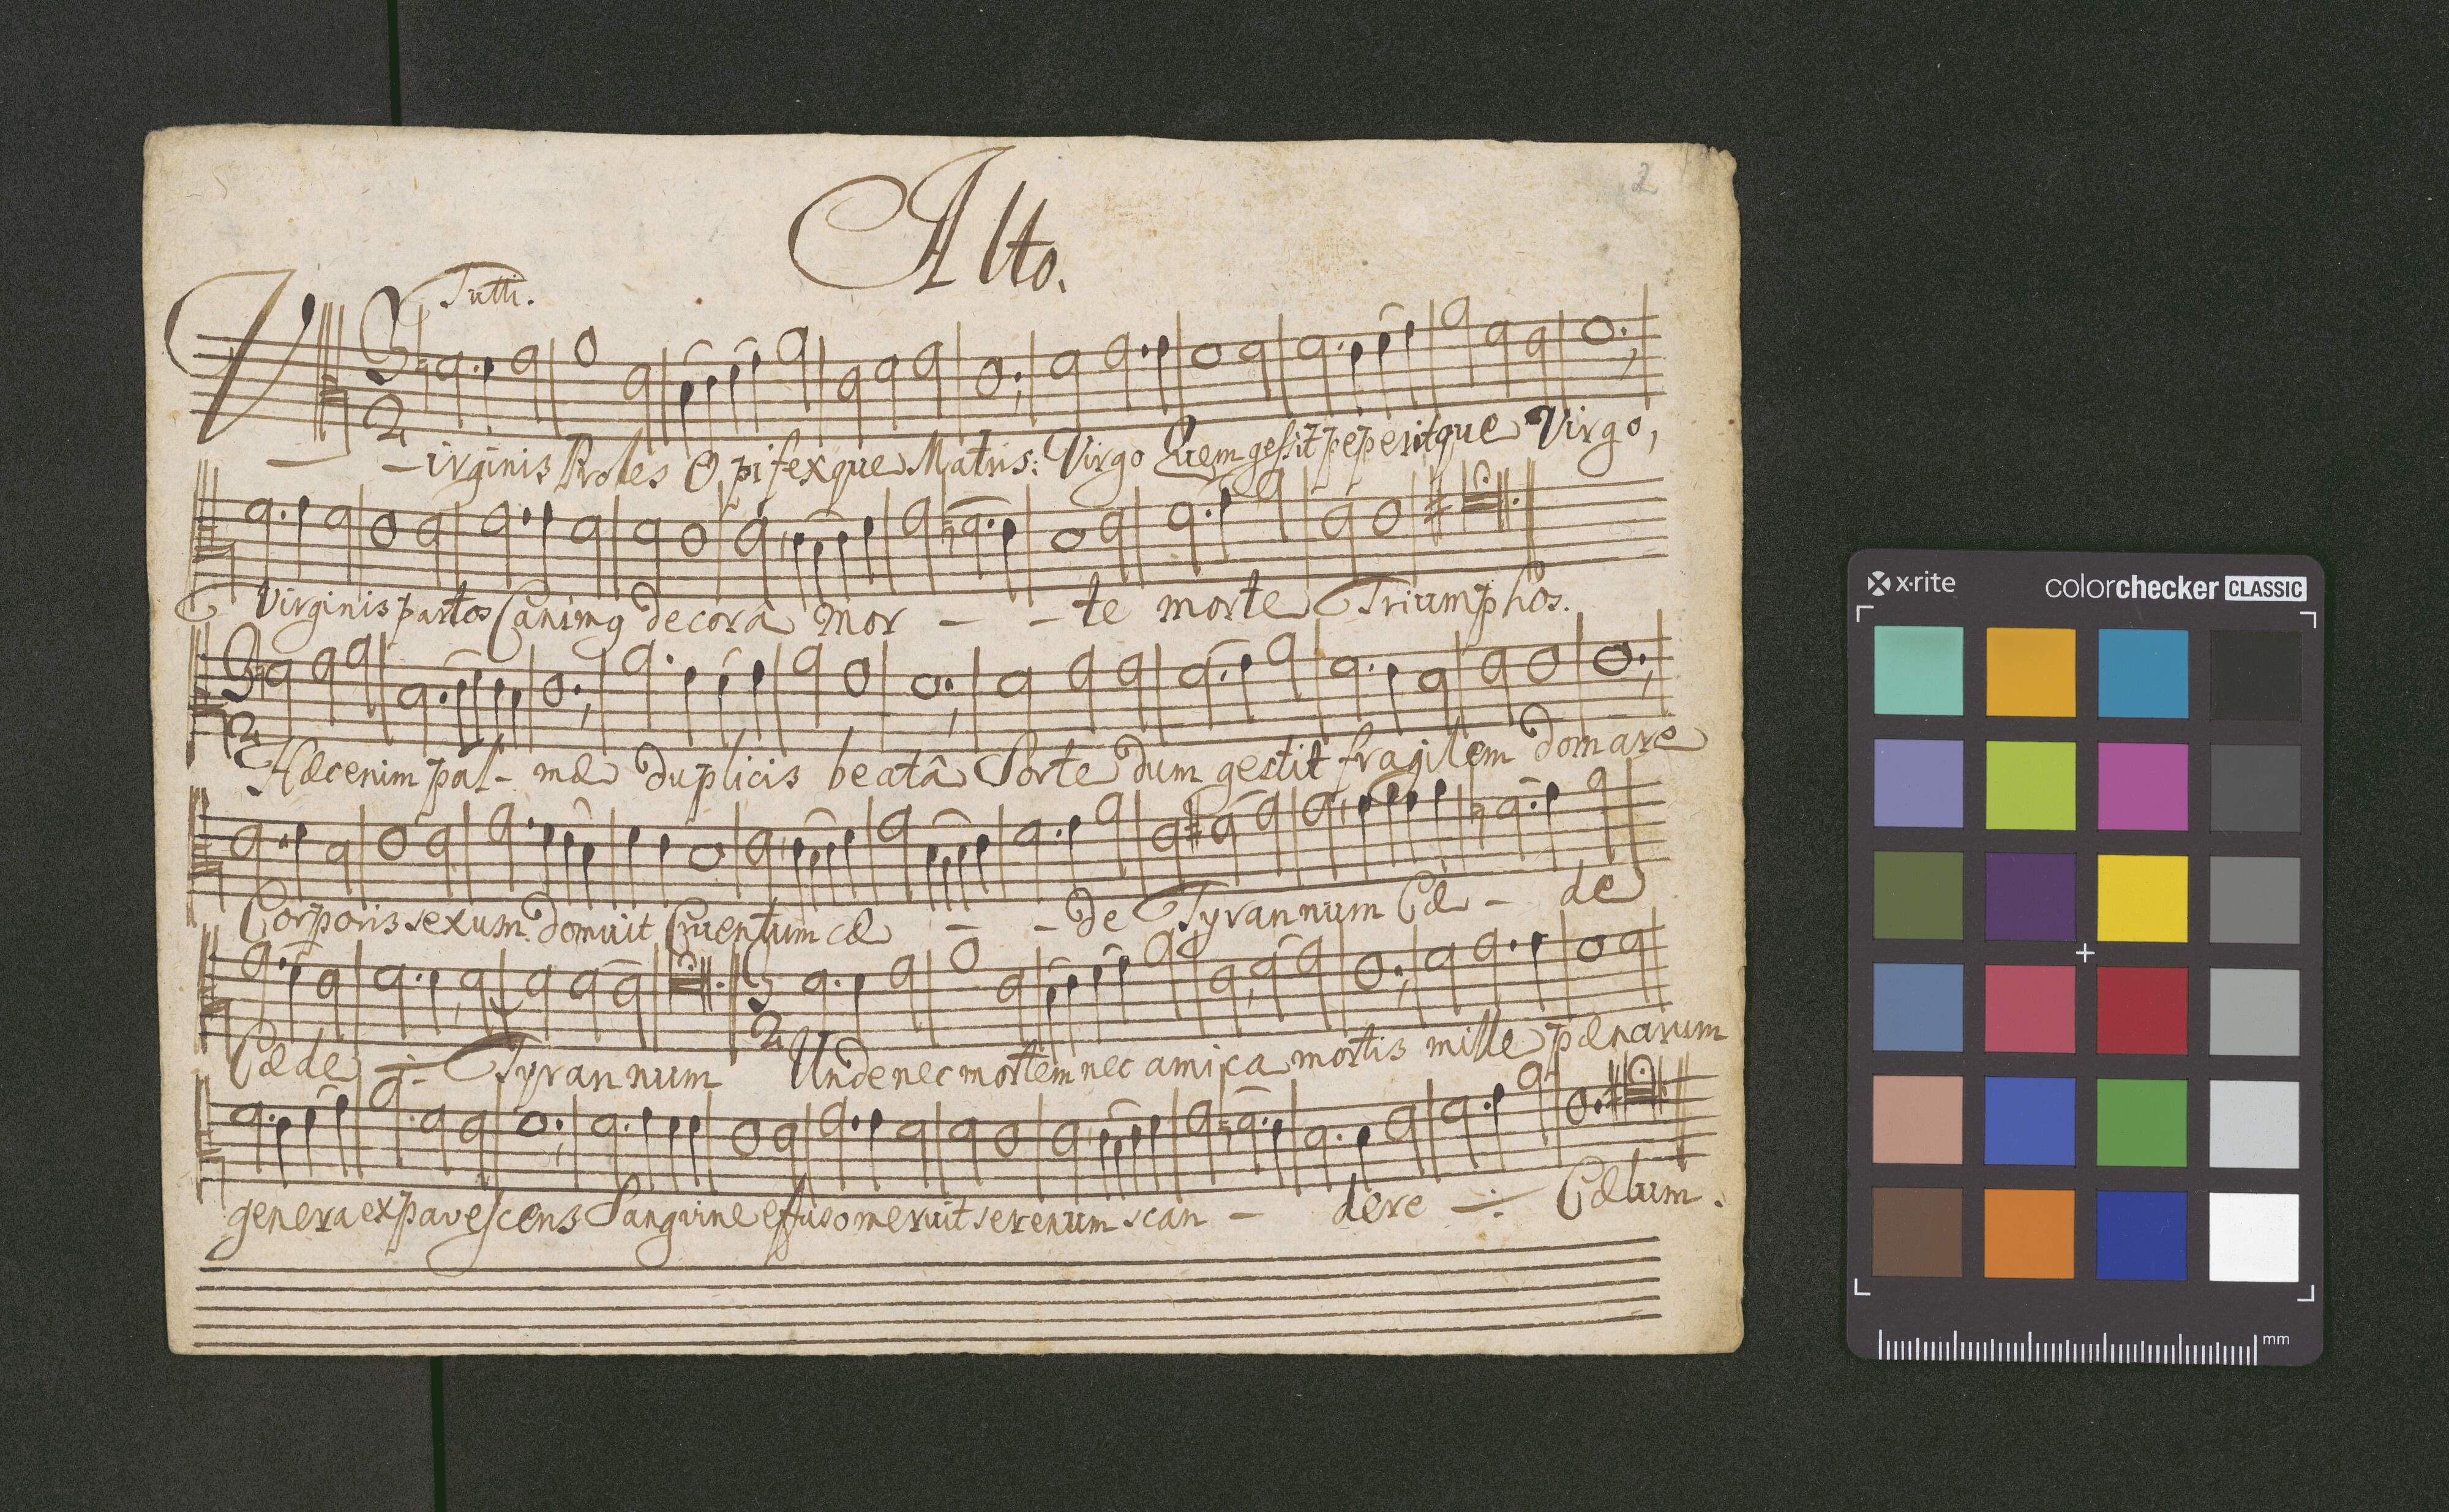 Alto.
2
Tutti.
3
2
Virginis Proles Opifexque Matris: Virgo Quem gessit peperitque Virgo,
Virginis partos Canimg decorâ mor - - te morte Triumphos.
3
2
Hæc enim pal- mæ duplicis beatâ Sorte dum gestit fragilem domare
Corporis sexum domuit Cruentum cæ - - de Tyrannum Cæ - de
3
2
Cæde ÷ Tyrannum Unde nec mortem nec amica mortis mille pænarum
genera expavescens Sanguine effuso meruit serenum scan - dere ÷ Cælum.
x·rite
colorchecker CLASSIC
mm